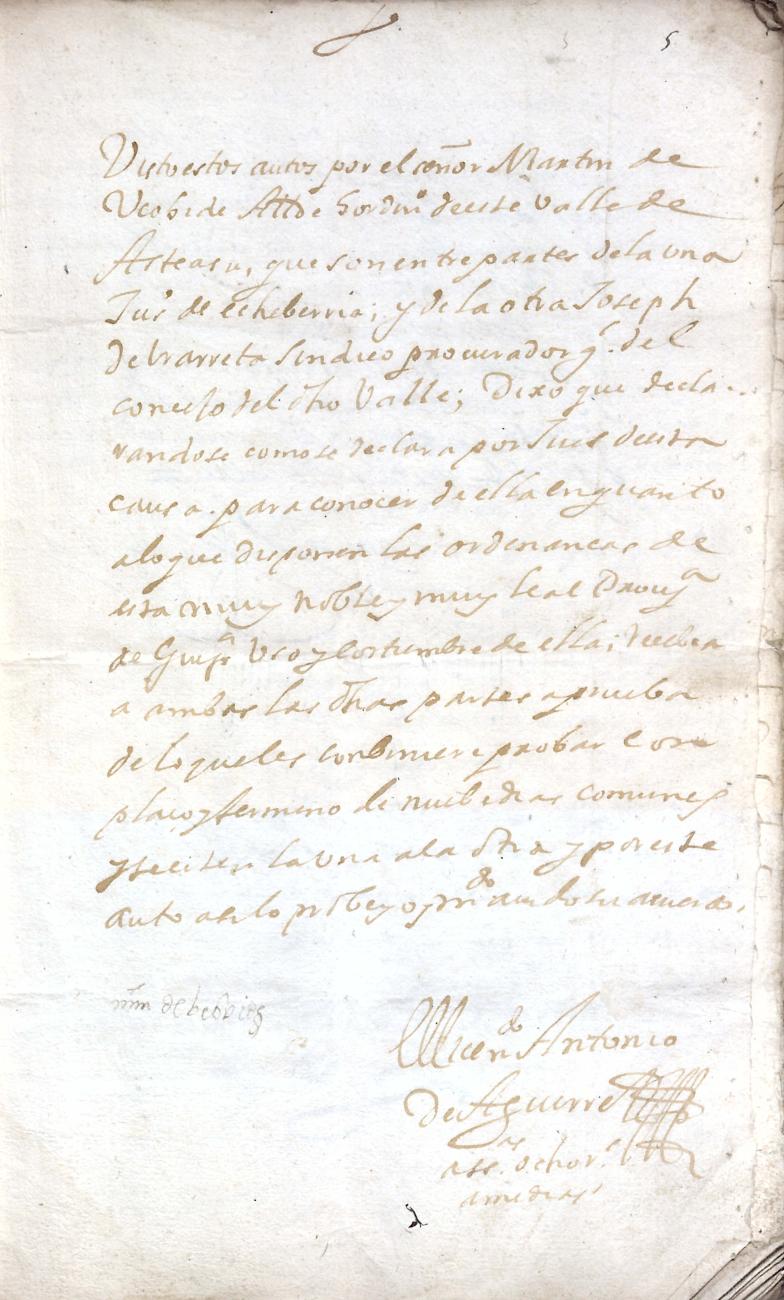 5
Visto estos autos por el señor Martin de
Ucobide Allde hordinº de este Valle de
Asteasu, que son entre partes de la una
Juº de echeberria; y de la otra Joseph
de Irarreta Sindico procurador gl. del
concejo del dho Valle; Dixo que decla-
randose como se declara por Jues de esta
causa para conocer de ella en quanto
a lo que disponen las ordenancas de
esta muy noble y muy leal Prouja
de Guipa Vso y Costumbre de ella; Recibia
a ambas las dhas partes a prueba
de lo que les conbiniere probar con
plaço y termino de nuebe dias comunes
y se citen la una a la otra y por este
auto asi lo probeyo y firmdo auido su acuerdo.
mrn de
El Licendo Antonio
De Aguirre
ass. ocho rs.
a medias